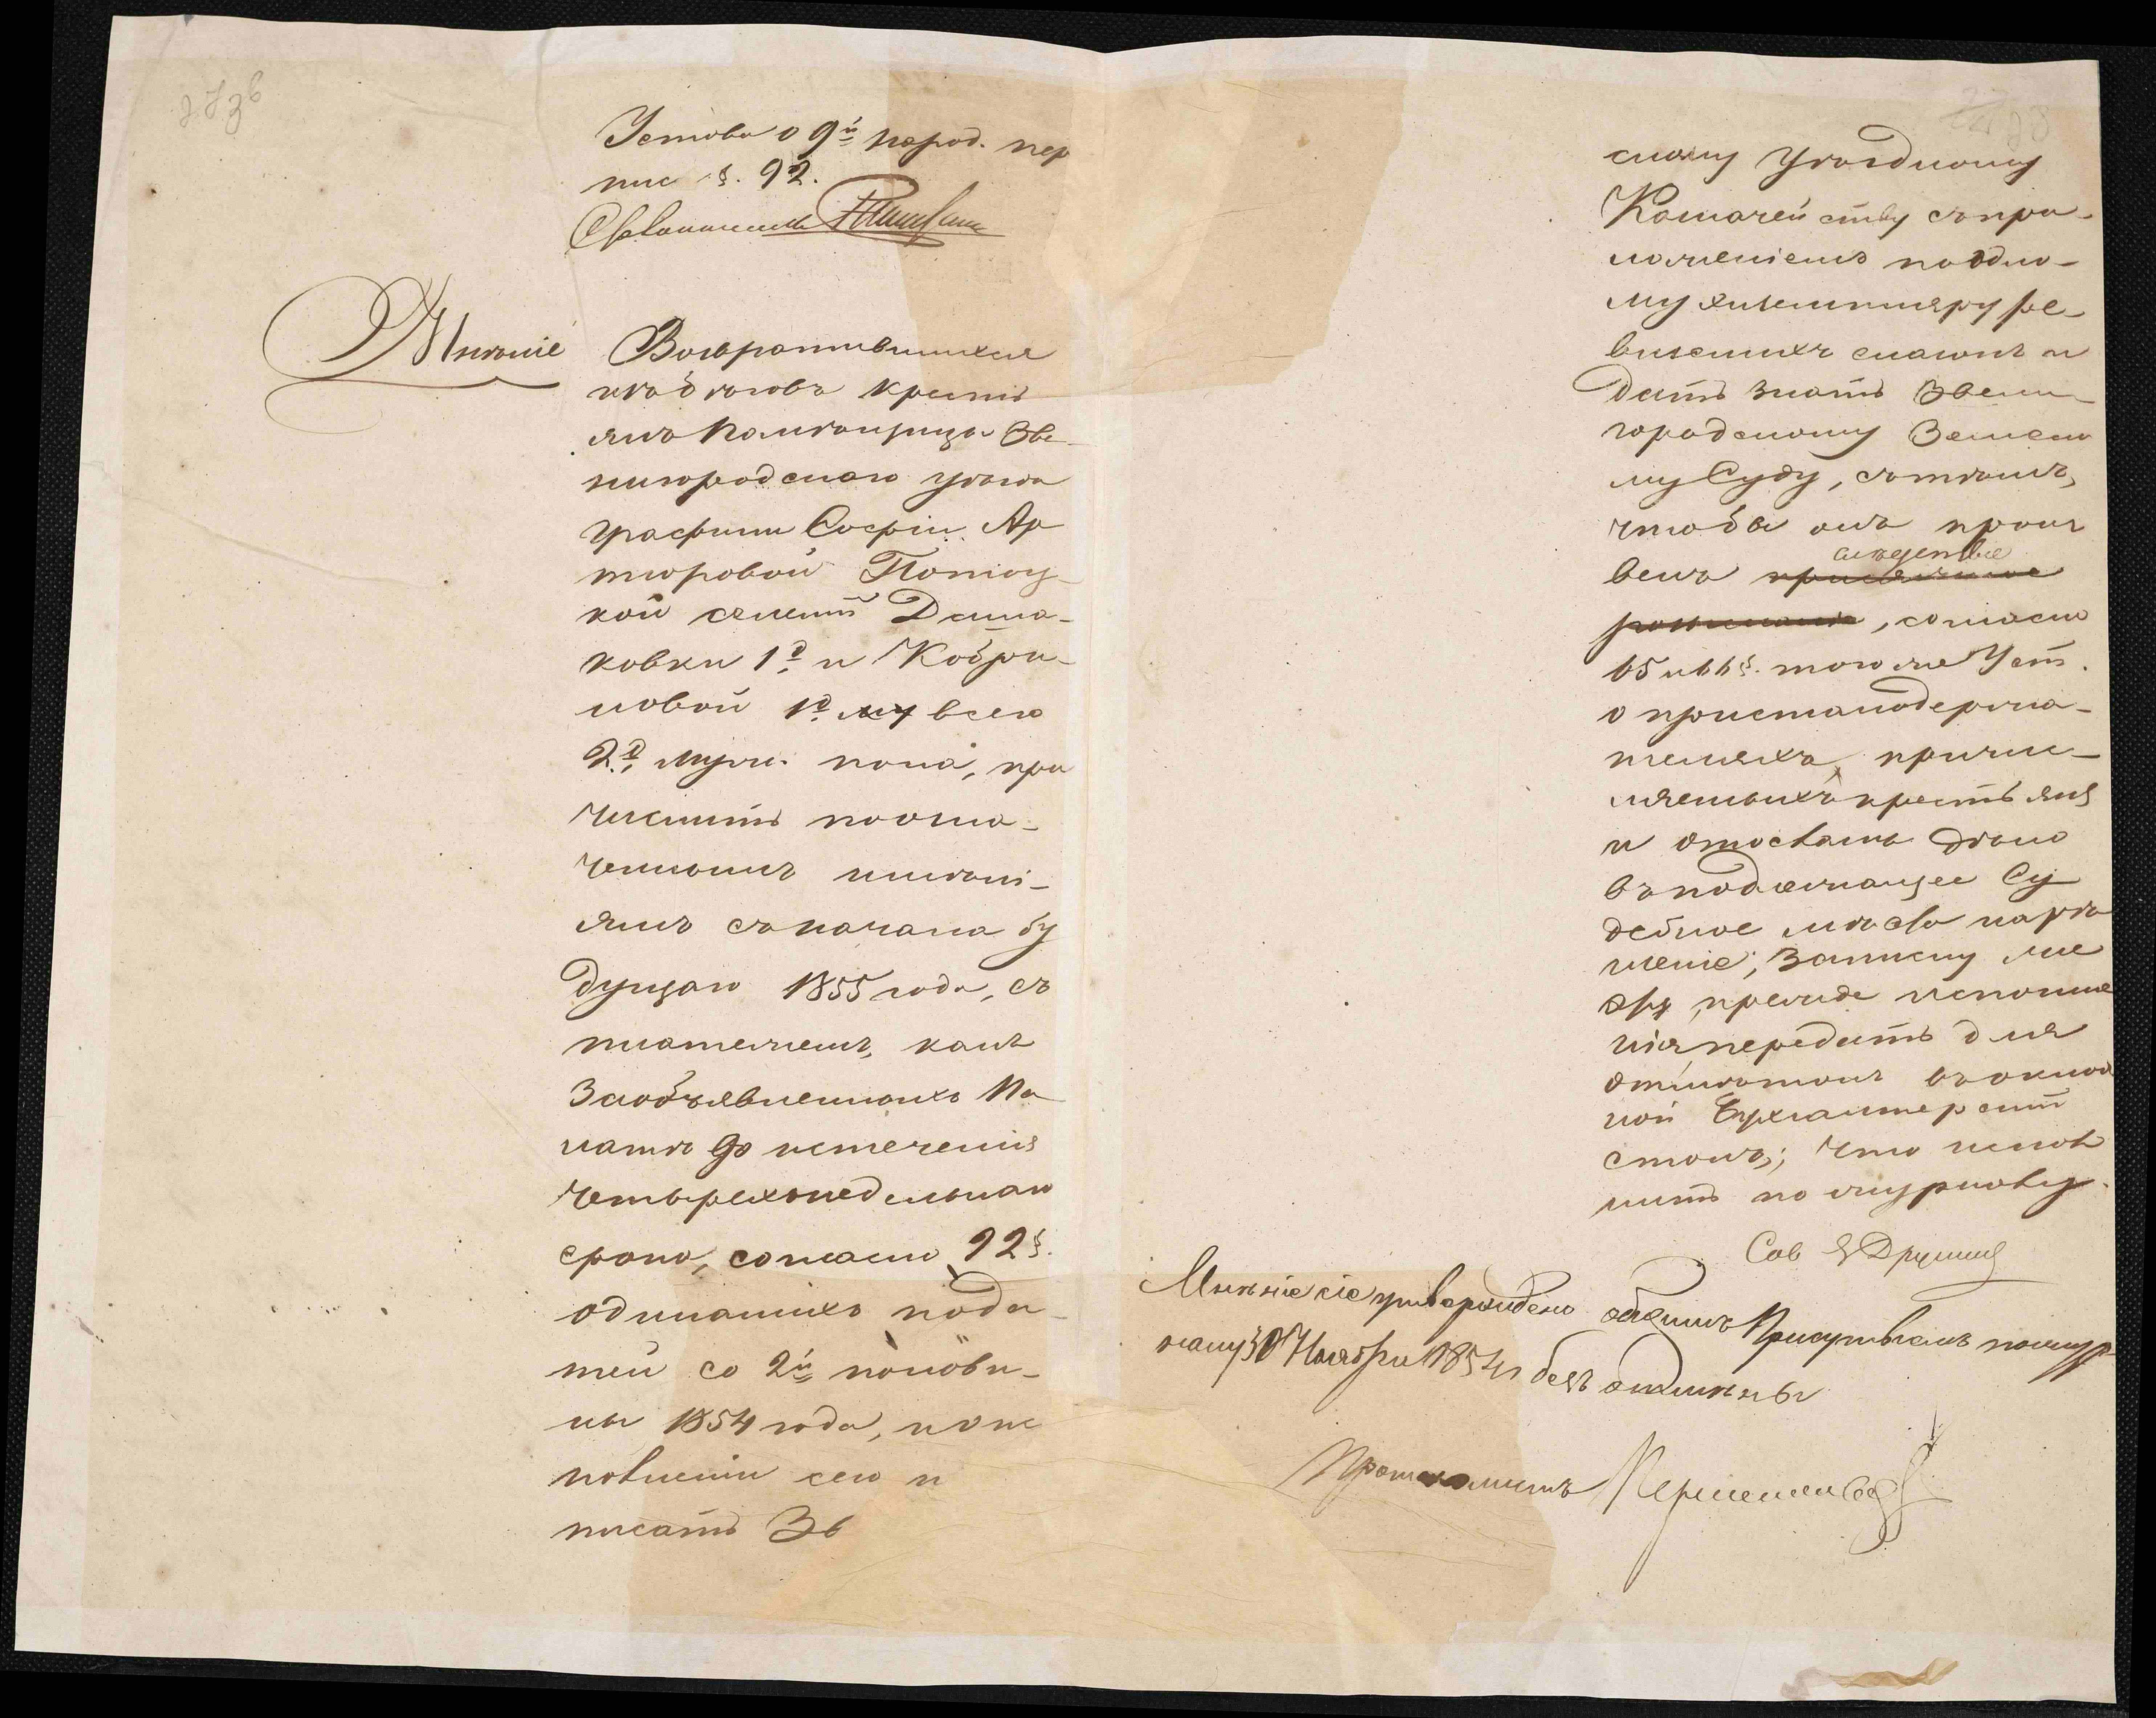 273б
Устава о 9й народ. пер
пис §. 92.
Мнѣніе
Возвратившихся
изъ бѣговъ кресть
янъ помѣщицы Зве
нигородскаго уѣзда
графини Софіи Ар
тюровой Потоц-
кой селеній Дашу-
ковки 1 д. и Кобри-
новой 1 д. всего
2 д. муж. пола, при
числить по озна-
ченнымъ имѣні-
ямъ съ начала бу
дущаго 1855 года, съ
платежемъ, какъ
за объявленныхъ Па
латѣ до истеченія
четырехнедельнаго
срока, согласно 92 §.
одинакихъ пода-
тей со 2й полови-
ны 1854 года, и о ис
полненіи сего п
писать Зв
скому Уѣздному
Казначейству съ при-
ложеніемъ по одно-
му экземпляру ре-
визскихъ сказокъ и
дать знать Звени-
городскому Земско
му Суду, съ тѣмъ,
чтобы онъ произ
велъ слѣдствіе
, согласно
65 и 66 §. того же Уст.
о пристанодержа-
теляхъ причис-
ляемыхъ крестьянъ
и отослалъ дѣло
въ подлежащее Су
дебное мѣсто на рѣ
шеніе; Записку же
эту, прежде исполне
нія передать для
отмѣтокъ въ оклад
ной Бухгалтерскій
столъ; что испол
нить по журналу.
Сов
Мнѣніе сіе утверждено общимъ Присутствіемъ по жур-
налу 30 Ноября 1854 г. безъ отмѣны
Протоколистъ